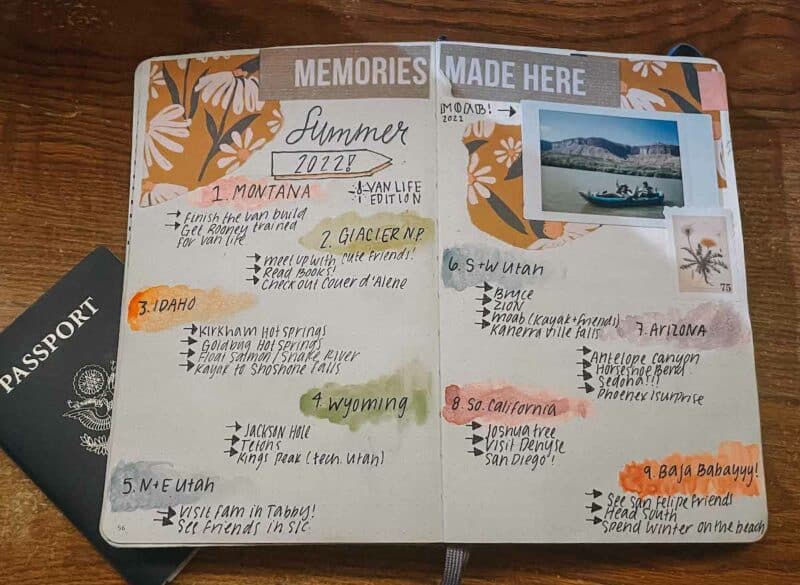 MEMORIES MADE HERE
Summer
2022!
VAN LIFE
EDITION
1. MONTANA
Finish the van build
Get Rooney trained
for van life
2. GLACIER N.P.
meet up with cute friends!
Read Books!
Check out Couer d'Alene
3. IDAHO
Kirkham Hot springs
Goldbug Hot springs
Float Salmon/Snake River
Kayak to Shoshone Falls
4. WYOMING
JACKSON HOLE
Tetons
Kings Peak (tech. Utah)
5. N+E UTAH
Visit fam in Tabby!
See Friends in SLC
56
MOAB!
2022
75
6. S+W UTAH
Bryce
ZION
Moab (Kayak+friends)
Kanerraville Falls
7. ARIZONA
Antelope Canyon
Horseshoe Bend
Sedona!!!
Phoenix surprise
8. SO. California
Joshua tree
Visit Denyse
San Diego!
9. Baja Babayyy!
See San Felipe friends
Head South
Spend Winter on the beach
PASSPORT